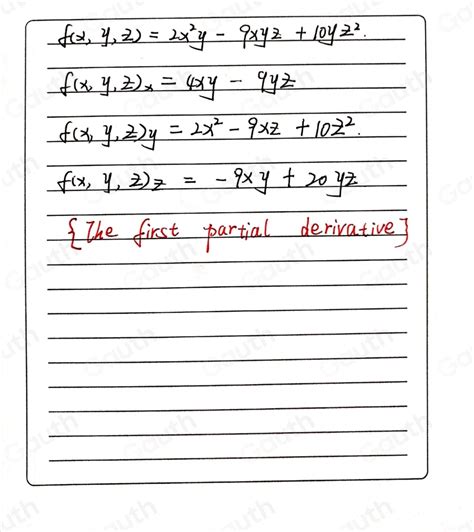 f(x, y, z) = 2x²y - 9xyz + 10yz².
f(x, y, z)ₓ = 4xy - 9yz
f(x, y, z)y = 2x² - 9xz + 10z².
f(x, y, z)z = -9xy + 20yz
{The first partial derivative}
Gauth